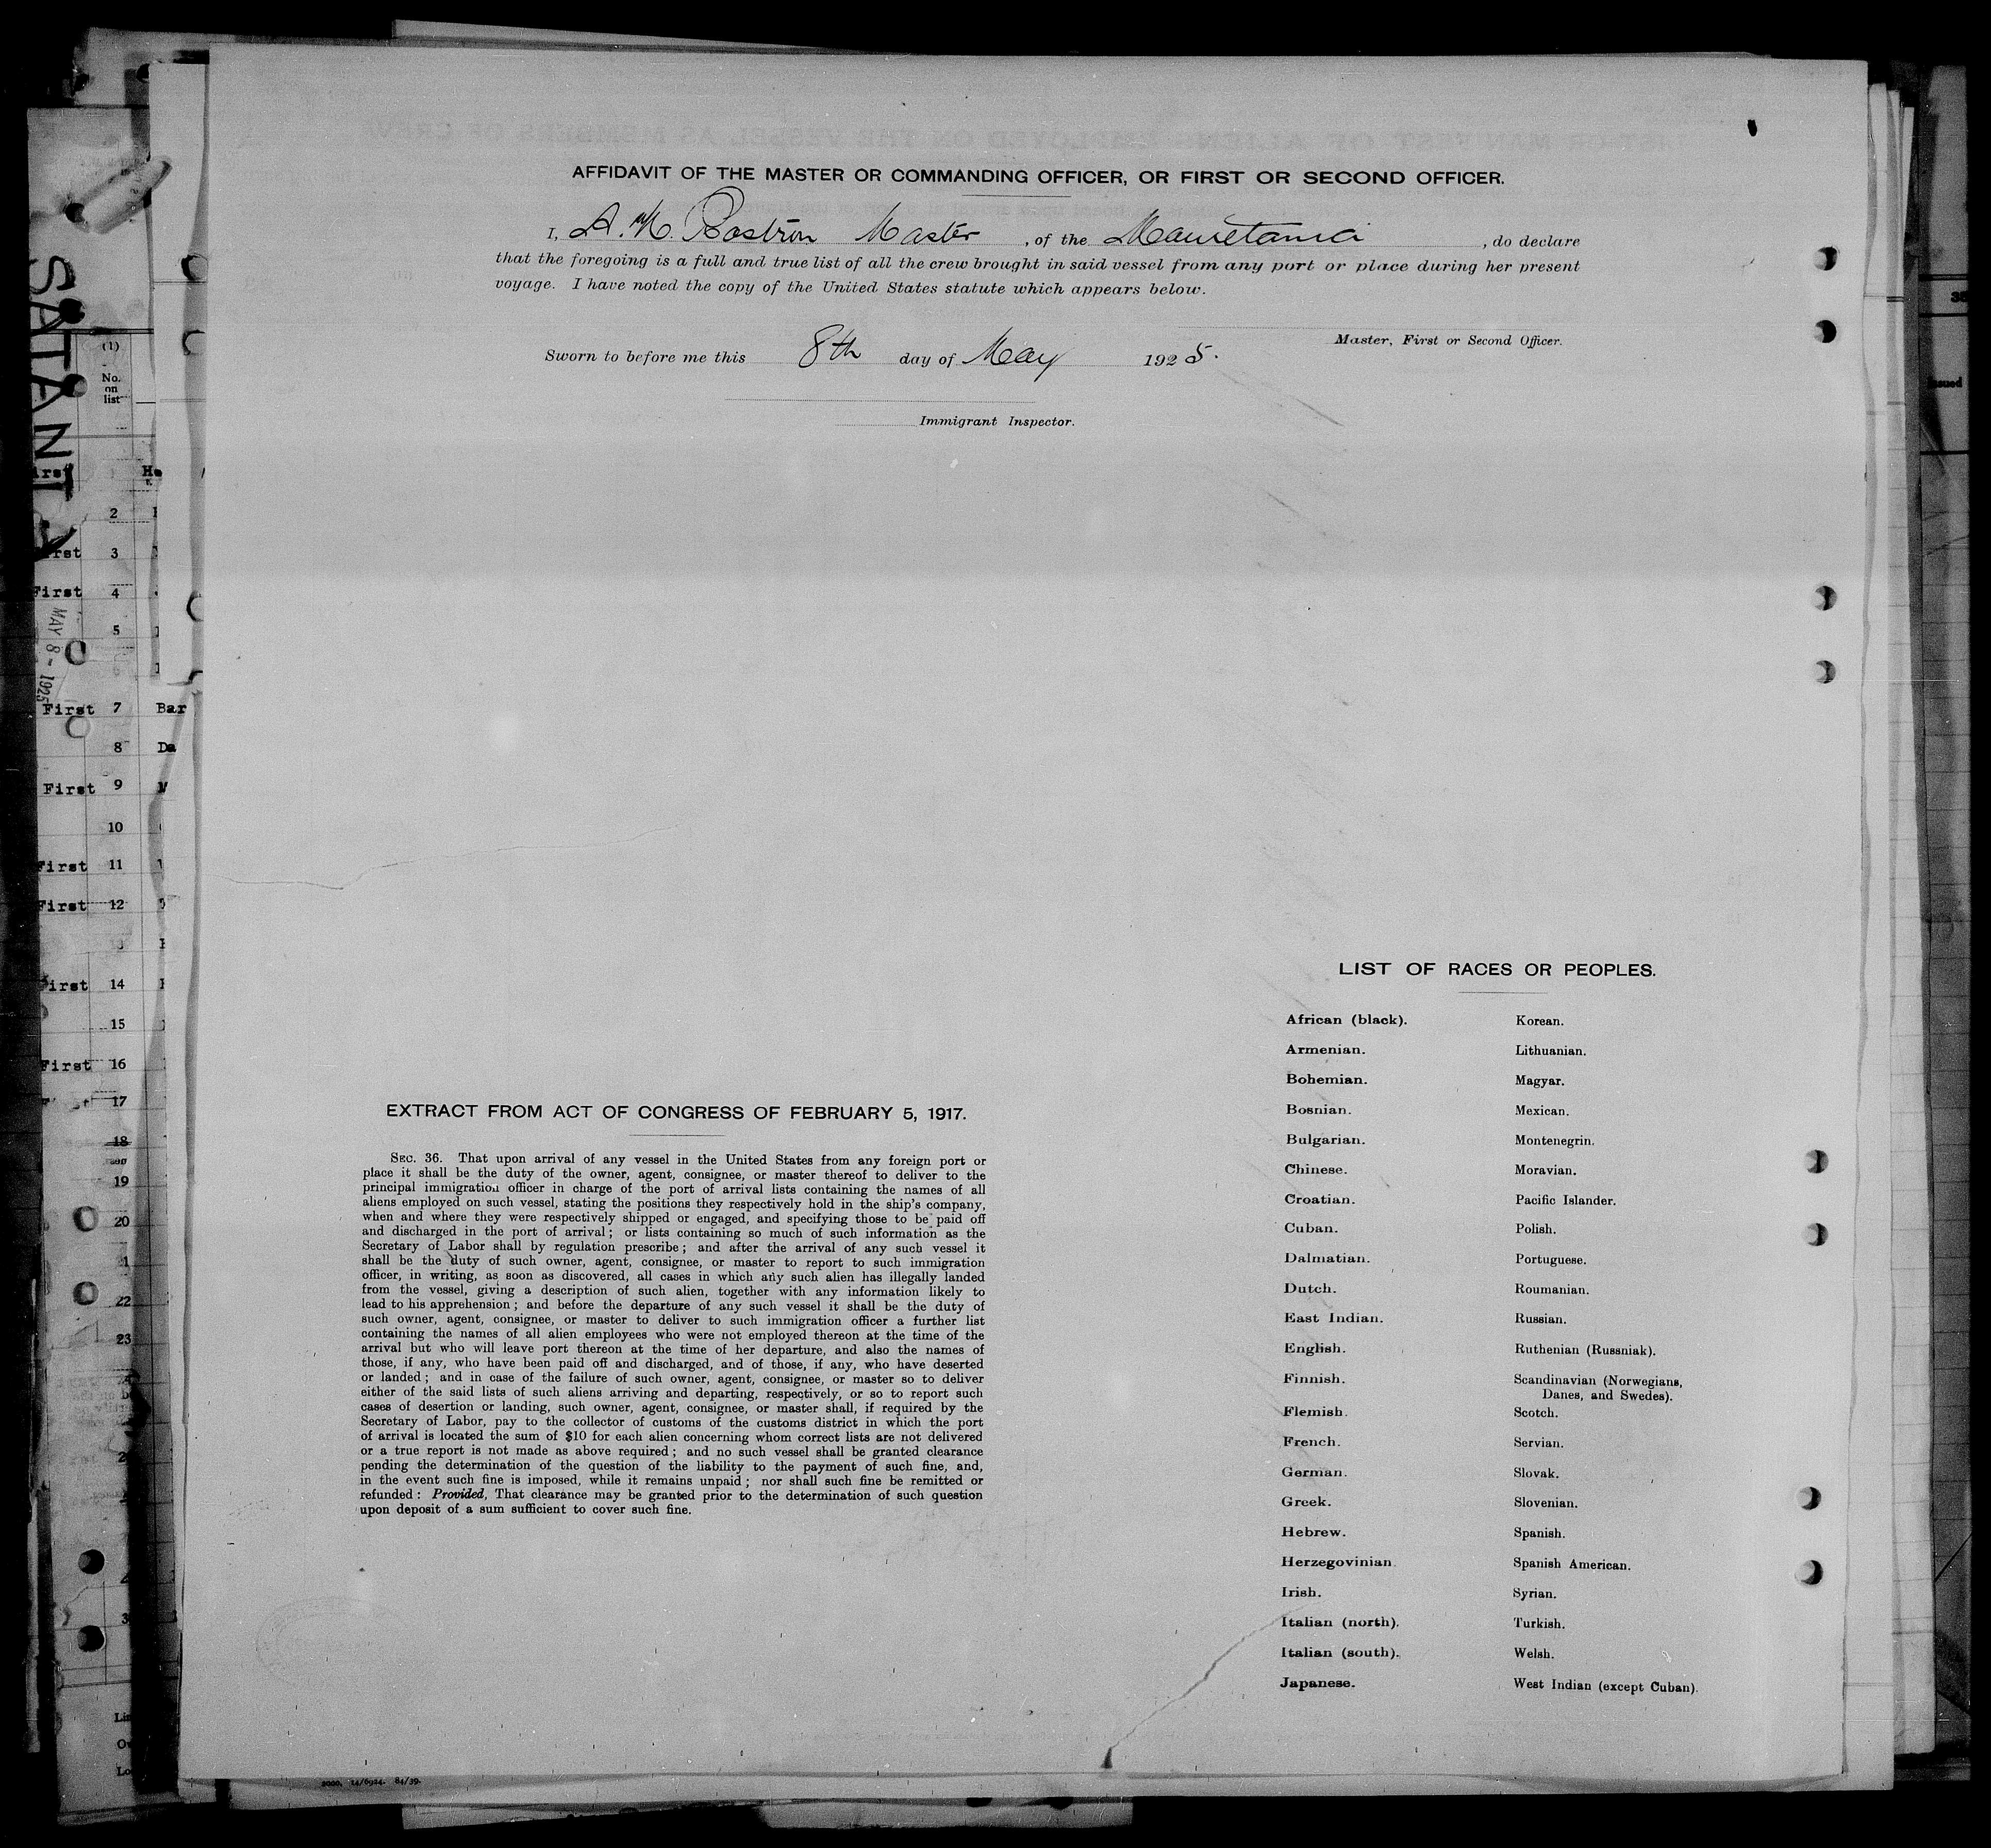 AFFIDAVIT OF THE MASTER OR COMMANDING OFFICER, OR FIRST OR SECOND OFFICER.
I, A. H. Rostron Master, of the Mauretania, do declare
that the foregoing is a full and true list of all the crew brought in said vessel from any port or place during her present
voyage. I have noted the copy of the United States statute which appears below.
Master, First or Second Officer.
Sworn to before me this 8th day of May 1925.
Immigrant Inspector.
EXTRACT FROM ACT OF CONGRESS OF FEBRUARY 5, 1917.
SEC. 36. That upon arrival of any vessel in the United States from any foreign port or
place it shall be the duty of the owner, agent, consignee, or master thereof to deliver to the
principal immigration officer in charge of the port of arrival lists containing the names of all
aliens employed on such vessel, stating the positions they respectively hold in the ship's company,
when and where they were respectively shipped or engaged, and specifying those to be paid off
and discharged in the port of arrival; or lists containing so much of such information as the
Secretary of Labor shall by regulation prescribe; and after the arrival of any such vessel it
shall be the duty of such owner, agent, consignee, or master to report to such immigration
officer, in writing, as soon as discovered, all cases in which any such alien has illegally landed
from the vessel, giving a description of such alien, together with any information likely to
lead to his apprehension; and before the departure of any such vessel it shall be the duty of
such owner, agent, consignee, or master to deliver to such immigration officer a further list
containing the names of all alien employees who were not employed thereon at the time of the
arrival but who will leave port thereon at the time of her departure, and also the names of
those, if any, who have been paid off and discharged, and of those, if any, who have deserted
or landed; and in case of the failure of such owner, agent, consignee, or master so to deliver
either of the said lists of such aliens arriving and departing, respectively, or so to report such
cases of desertion or landing, such owner, agent, consignee, or master shall, if required by the
Secretary of Labor, pay to the collector of customs of the customs district in which the port
of arrival is located the sum of $10 for each alien concerning whom correct lists are not delivered
or a true report is not made as above required; and no such vessel shall be granted clearance
pending the determination of the question of the liability to the payment of such fine, and,
in the event such fine is imposed, while it remains unpaid; nor shall such fine be remitted or
refunded: Provided, That clearance may be granted prior to the determination of such question
upon deposit of a sum sufficient to cover such fine.
LIST OF RACES OR PEOPLES.
African (black).
Armenian.
Bohemian.
Bosnian.
Bulgarian.
Chinese.
Croatian.
Cuban.
Dalmatian.
Dutch.
East Indian.
English.
Finnish.
Flemish.
French.
German.
Greek.
Hebrew.
Herzegovinian.
Irish.
Italian (north).
Italian (south).
Japanese.
Korean.
Lithuanian.
Magyar.
Mexican.
Montenegrin.
Moravian.
Pacific Islander.
Polish.
Portuguese.
Roumanian.
Russian.
Ruthenian (Russniak).
Scandinavian (Norwegians,
Danes, and Swedes).
Scotch.
Servian.
Slovak.
Slovenian.
Spanish.
Spanish American.
Syrian.
Turkish.
Welsh.
West Indian (except Cuban).
(1)
No.
on
list
2
3
First 4
5
First 7 Bar
8 Da
First 9
10
First 11
First 12
First 14
15
First 16
17
18
19
20
22
23
MAY 8 - 1925